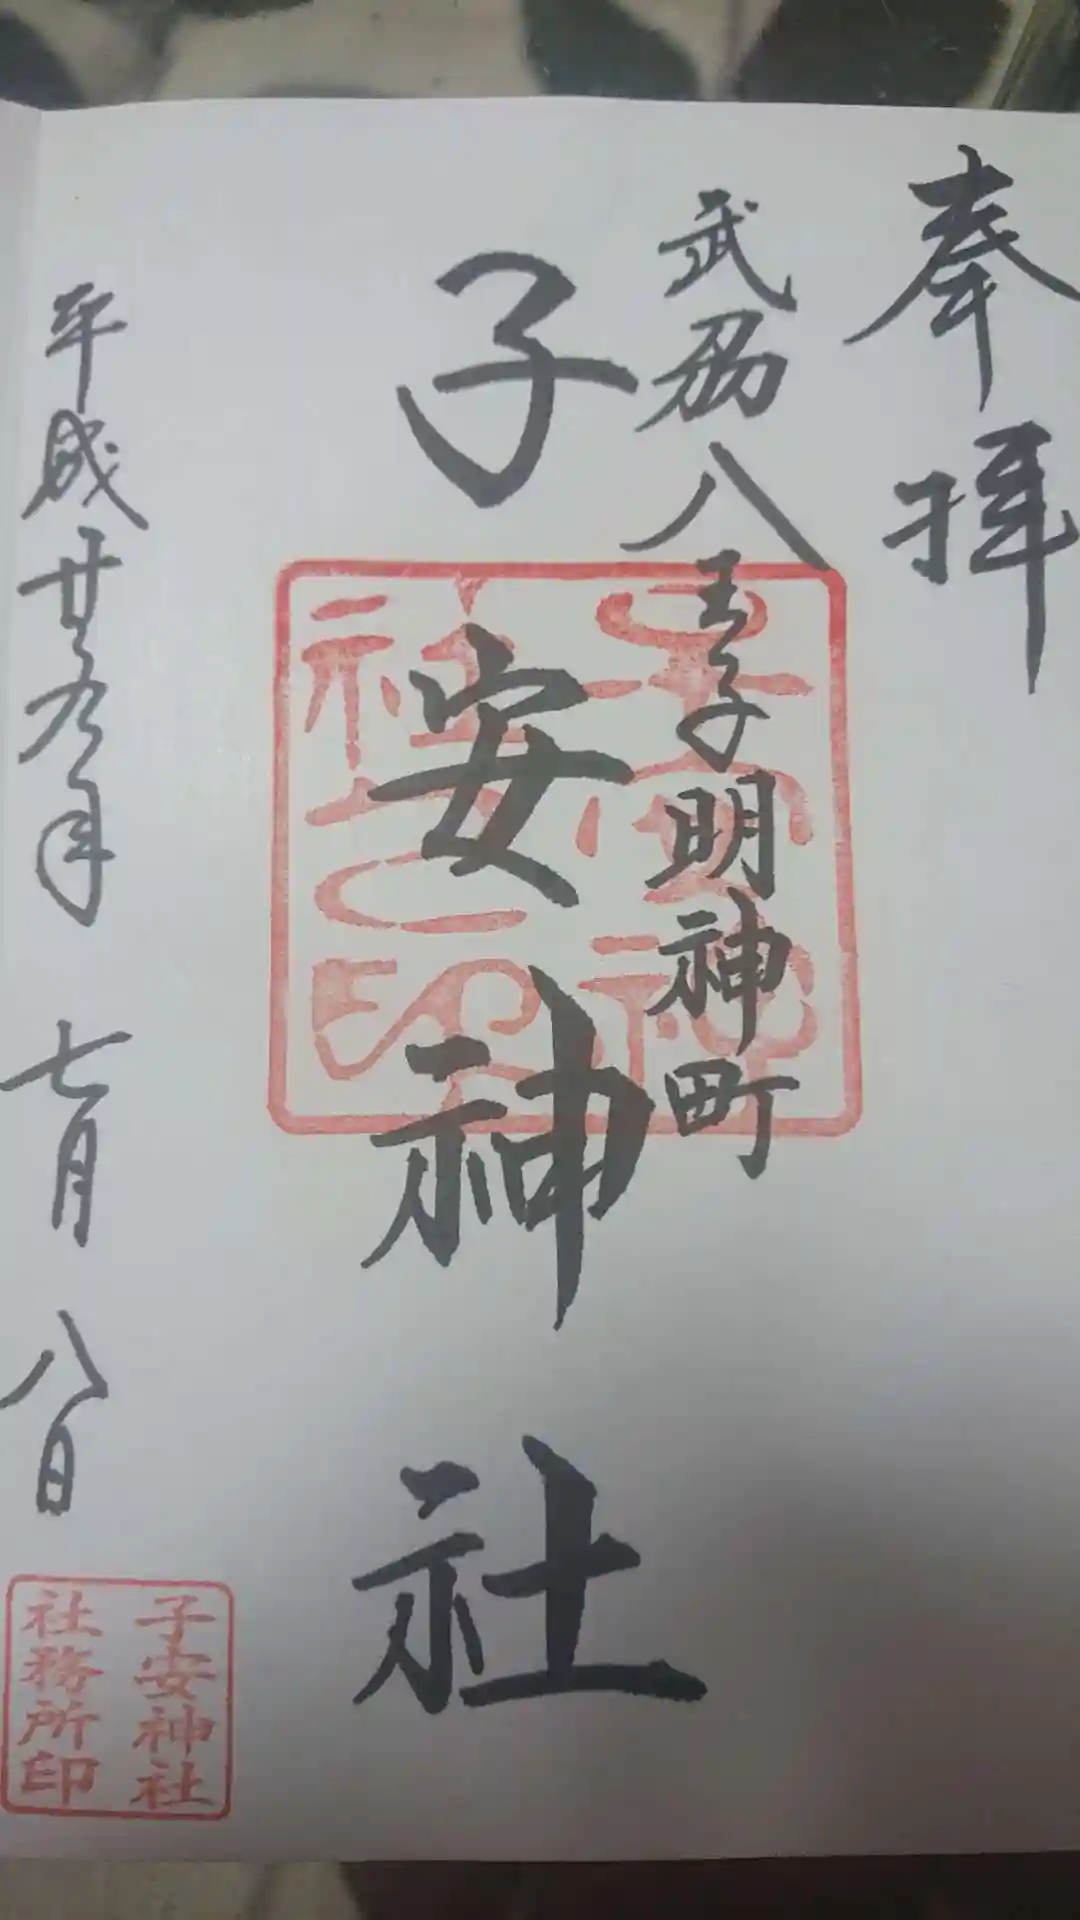 奉拝
武刕八王子明神町
子安神社
平成廿九年 七月 八日
子安神社
社務所印